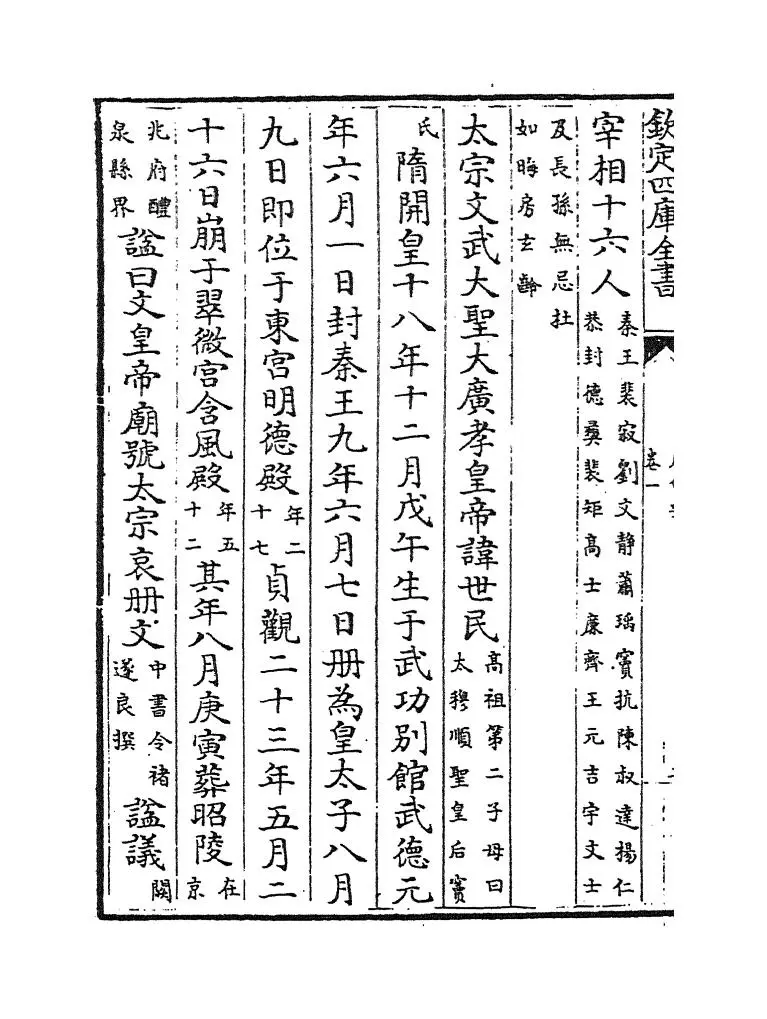 欽定四庫全書
卷一
宰相十六人秦王裴寂劉文靜蕭瑀竇抗陳叔達揚仁恭封德彝裴矩高士廉齊王元吉宇文士
及長孫無忌杜如晦房玄齡
太宗文武大聖大廣孝皇帝諱世民高祖第二子母曰太穆順聖皇后竇
氏隋開皇十八年十二月戊午生于武功別館武德元
年六月一日封秦王九年六月七日册為皇太子八月
九日即位于東宮明德殿年二十七貞觀二十三年五月二
十六日崩于翠微宮含風殿年五十二其年八月庚寅葬昭陵在京
兆府醴泉縣界諡曰文皇帝廟號太宗哀册文中書令褚遂良撰諡議闕